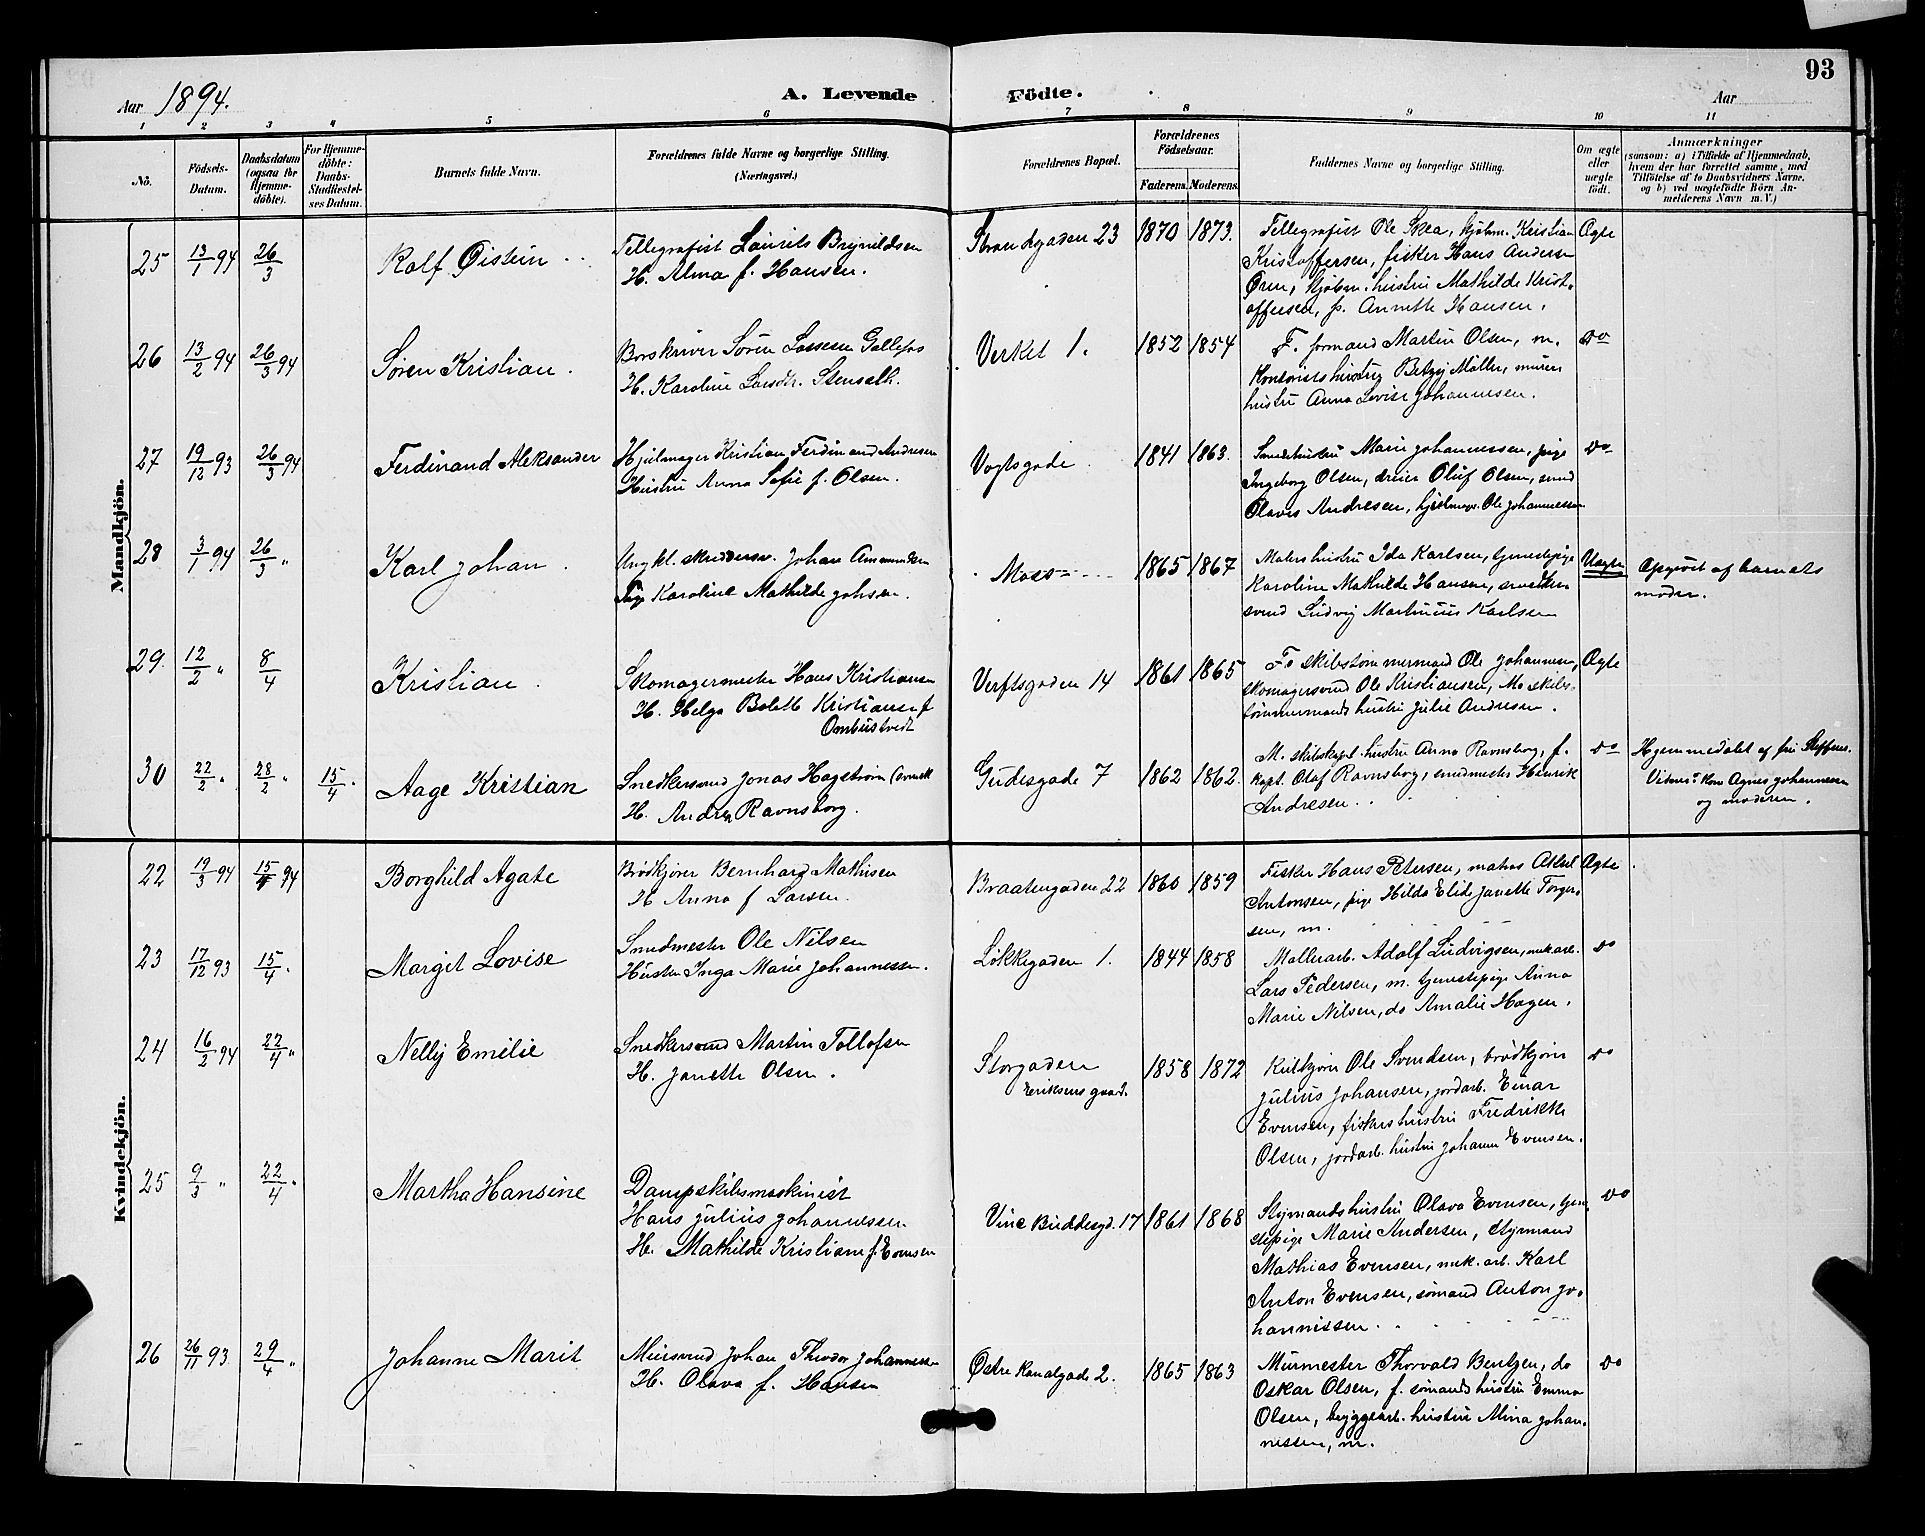 93
Aar 1894.
A. Levende Födte.
Aar
1 2 3 4 5 6 7 8 9 10 11
No.
Födsels-Datum.
Daabsdatum (ogsaa for Hjemme-döbte).
For Hjemme-döbte: Daabs-Stadfæstel-ses Datum.
Barnets fulde Navn.
Forældrenes fulde Navne og borgerlige Stilling. (Næringsvei.)
Forældrenes Bopæl.
Forældrenes Födselsaar.
Faderens. Moderens.
Faddernes Navne og borgerlige Stilling.
Om ægte eller uægte födt.
Anmærkninger
(saasom: a) i Tilfælde af Hjemmedaab, hvem der har forrettet samme, med Tilföielse af to Daabsvidners Navne, og b) ved uægtefödte Börn An-melderens Navn m. V.)
Mandkjön.
25 13/1 94 26/3 Rolf Øistein
Tellegrafist Laurits Brynildsen
H. Alma f. Hansen.
Strandgaden 23 1870 1873.
Tellegrafist Ole Skea, Kjøbm. Kristian
Kristoffersen, fisker Hans Andersen
Øren, Kjøbm. hustru Mathilde Krist-
offersen, p. Annette Hansen.
Ægte
26 13/2 94 26/3 94 Søren Kristian.
Søren Lassesen
H. Karoline Larsdtr.
Verket 1. 1852 1854
F. formand Martin Olsen, m.
Kontorists hustru Betzy Møller, murer
hustru Anna Lovise Johannesen.
do
27 19/12 93 26/3 94 Ferdinand Aleksander
Hjulmager Kristian Ferdinand Andresen
Hustru Anna Sofie f. Olsen.
Vogtsgade 1841 1863.
Smedehustru Marie Johannessen, pige
Ingeborg Olsen, dreier Oluf Olsen, smed
Olaves Andresen, hjulmager Ole Johannessen
do
28 3/1 94 26/3 " Karl Johan.
Ungkl. skræddersv. Johan Amundsen
Pige Karoline Mathilde Johsen.
Moss 1865 1867
Malers hustru Ida Karlsen, tjenestepige
Karoline Mathilde Hansen, snedker
svend Ludvig Martinius Karlsen
Uægte
Opgivet af barnets
moder.
29. 12/2 " 8/4 Kristian.
Skomagermester Hans Kristiansen
H. Helga Bolette Kristiansen f
Ombustvedt
Verftsgaden 14 1861 1865
F. skibstømmermand Ole Johannesen,
skomagersvend Ole Kristiansen, M. skibs-
tømmermands hustru Julie Andresen.
Ægte
30 22/2 " 28/2 " 15/4 Aage Kristian
Snedkersvend Jonas Hagstrøm (svensk
H. Andrea Ravnsborg.
Gudesgade 7 1862 1862.
M. skibskapt. hustru Anna Ravnsborg, f.
kapt. Olaf Ravnsborg, smedmester Henrik
Andresen.
do
Hjemmedøbt af fru Steffens.
Vidner: Kone Agnes Johannesen
og moderen.
Kvindekjön.
22 19/3 94 15/4 94 Borghild Agate
Brødkjører Bernhard Mathisen
H Anna f Larsen.
Braatengaden 22 1860 1859
Fisker Hans Petersen, matros Aksel
Antonsen, pige Hilda Elide Janette Torger-
sen, m.
Ægte
23 17/12 93 15/4 " Margit Lovise
Smedmester Ole Nilsen
Hustru Inga Marie Johannessen.
Løkkegaden 1. 1844 1858
Møllerarb. Adolf Ludvigsen, mek arb.
Lars Pedersen, m. tjenestepige Anna
Marie Nilsen, do Amalie Hagen.
do
24 16/2 94 22/4 " Nelly Emilie
Snedkersvend Martin Tollofsen
H. Janette Olsen.
Storgaden
Eriksens gaard. 1858 1872
Kulkjører Ole Svendsen, brødkjører
Julius Johansen, jordarb. Einar
Evensen, fiskers hustru Fredrikke
Olsen, jordarb. hustru Johanne Evensen.
do
25 9/3 " 22/4 " Martha Hansine
Dampskibsmaskinist
Hans Julius Johannessen
H. Mathilde Kristiane f. Evensen
Vine Buddesgd. 17 1861 1868
Styrmandshustru Olava Evensen, tjene-
stepige Marie Andersen, Styrmand
Mathias Evensen, mek. arb. Karl
Anton Evensen, sømand Anton Jo-
hannissen.
do
26 26/11 93 29/4 " Johanne Marit
Mursvend Johan Theodor Johannessen
H. Olava f. Hansen
Østre Kanalgade 2. 1865 1863
Murmester Thorvald Bentzen, do
Oskar Olsen, f. sømands hustru Emma
Olsen, bryggearb. hustru Alina Johan-
nessen, m.
do